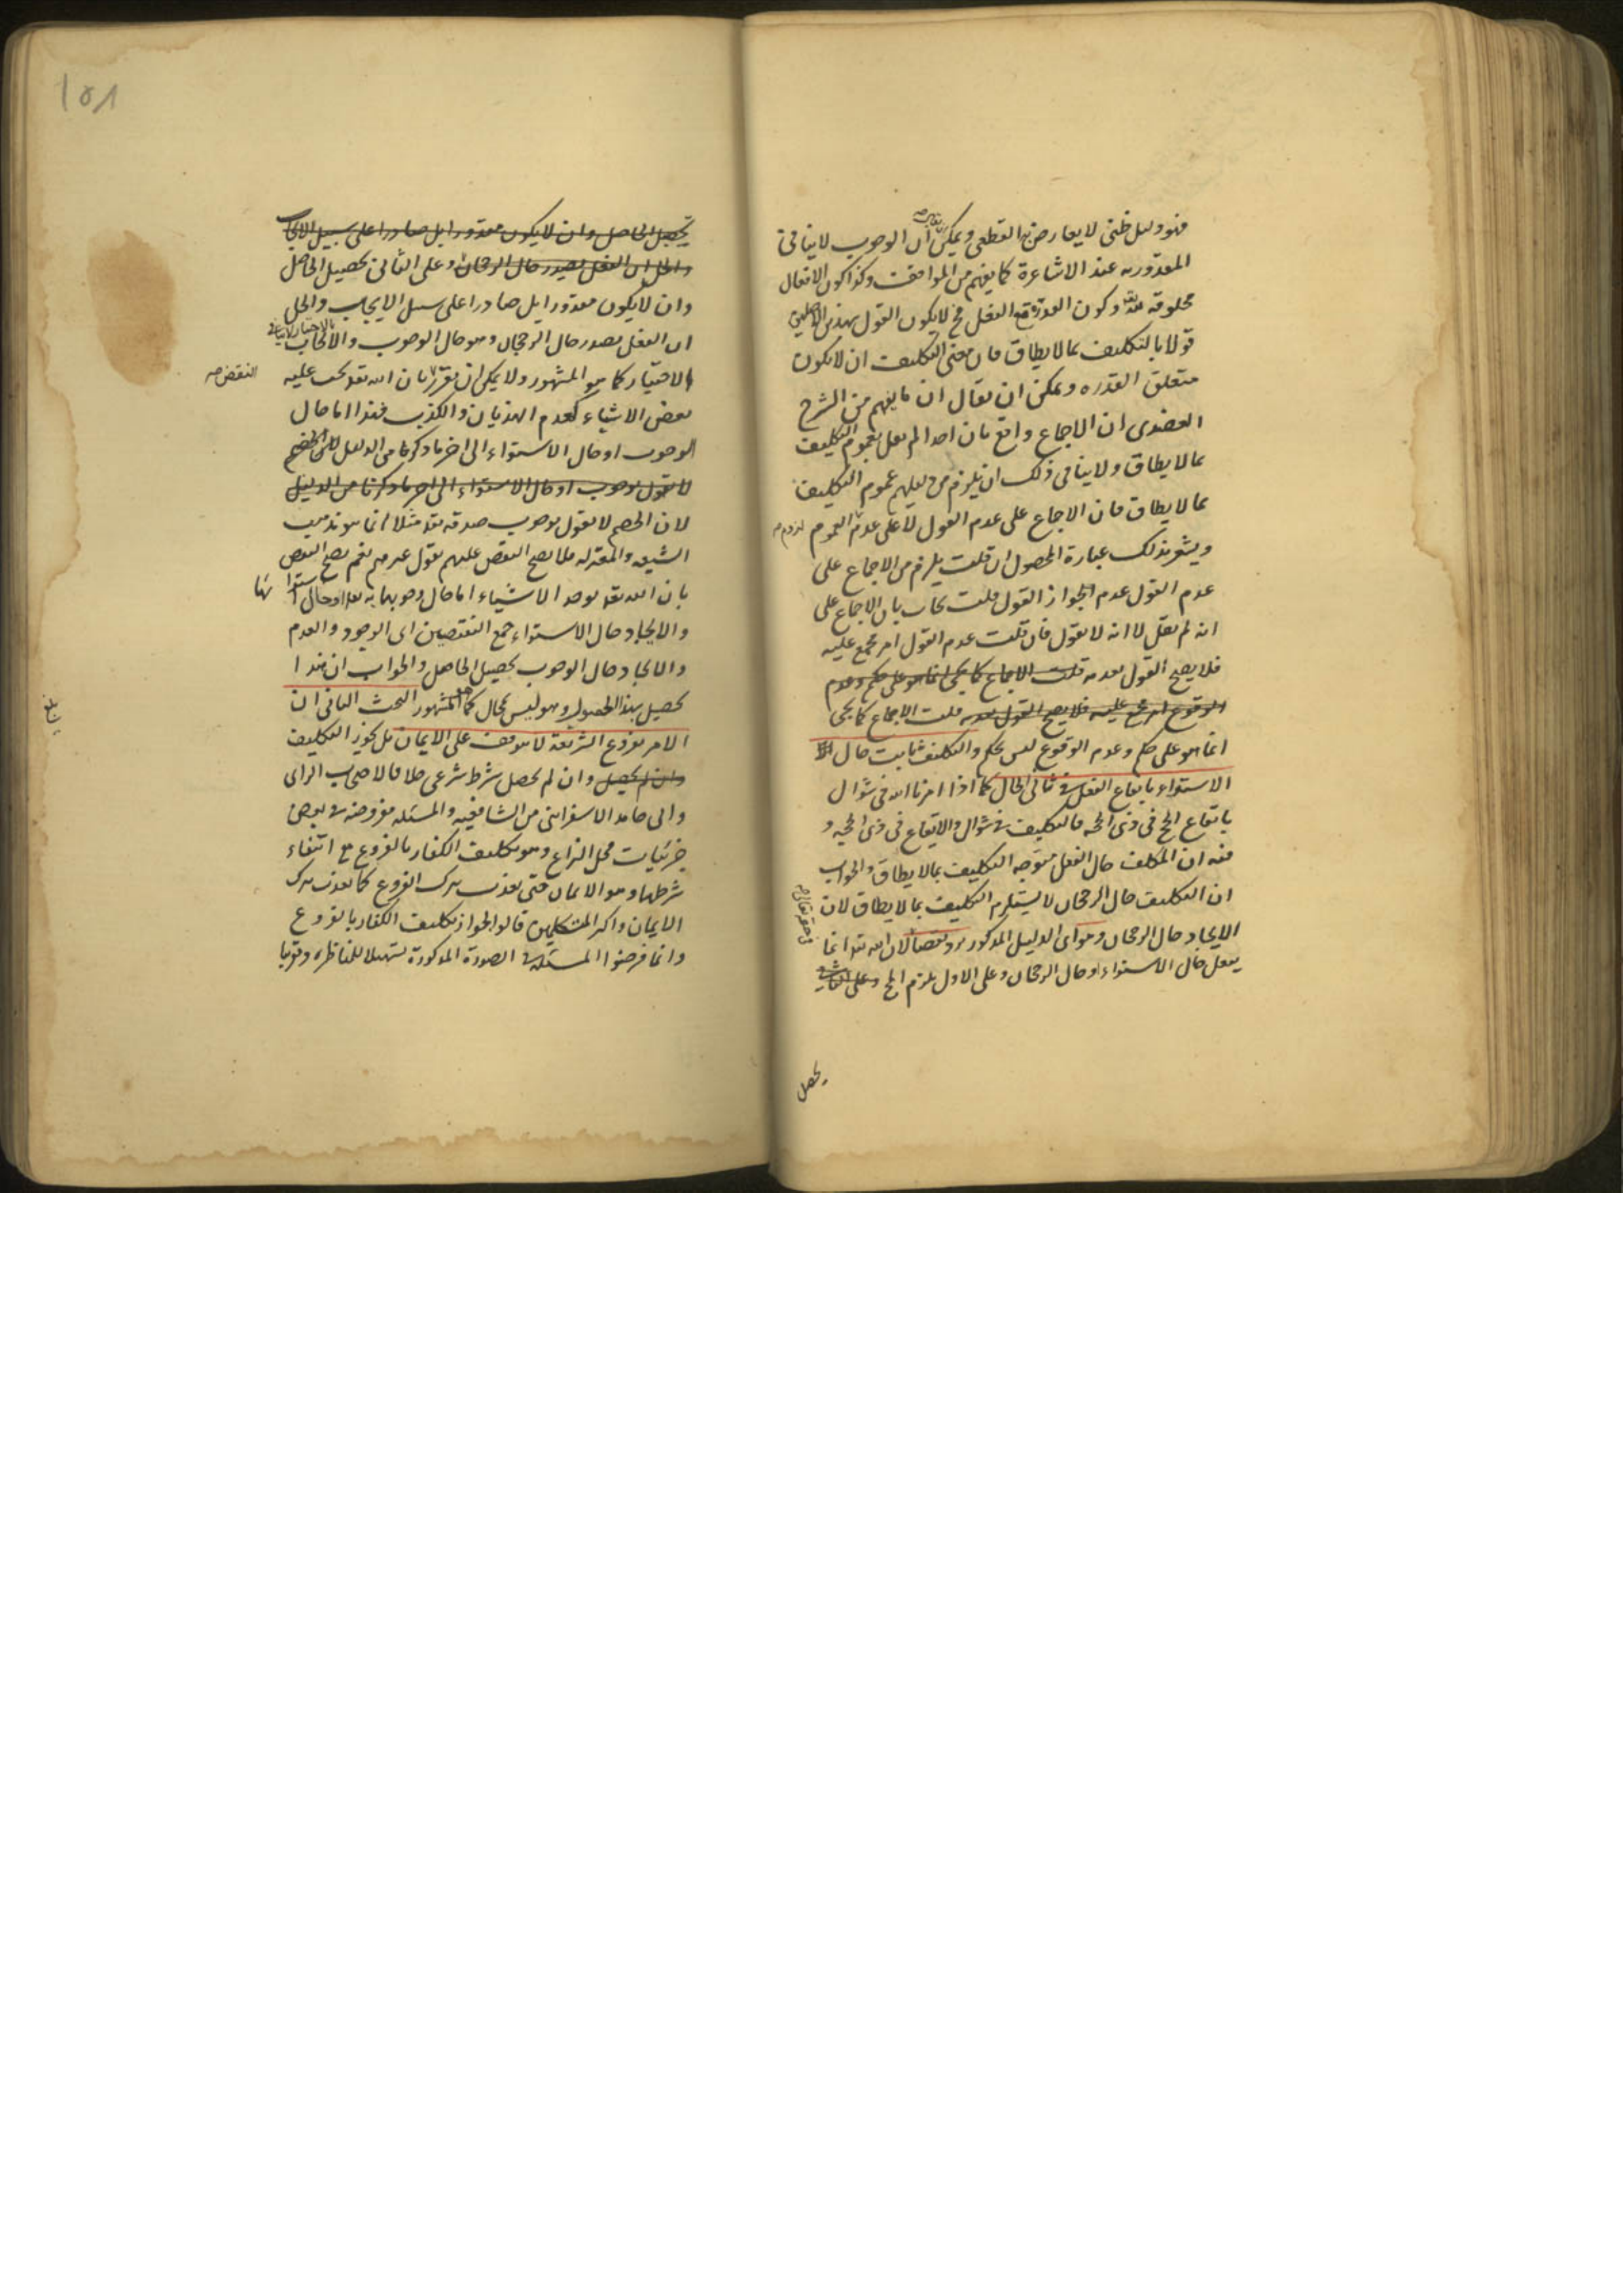 فهو دليل ظنى لا يعارض به القطعى ويمكن ان الوجوب لا ينافى
المقدورية عند الاشاعرة كما يفهم من المواقف وكذا كون الافعال
مخلوقة لله وكون القدرة مع الفعل فح لا يكون القول بهذين الاصلين
قولا بالتكليف بما لا يطاق فان معنى التكليف ان لا يكون
متعلق القدره ويمكن ان يقال ان ما يفهم من الشرح
العضدى ان الاجماع واقع بان احدا لم يقل بعموم التكليف
بما لا يطاق ولا ينافى ذلك ان يلزم من دليلهم عموم التكليف
بما لا يطاق فان الاجماع على عدم القول لا على عدم العموم
لزوم
ويشعر بذلك عبارة المحصول ان قلت يلزم من الاجماع على
عدم القول عدم الجواز القول قلت يجاب بان الاجماع على
انه لم يقل لا انه لا يقول فان قلت عدم القول امر مجمع عليه
فلا يصح القول بعدمه قلت الاجماع كما يجى انما هو على حكم وعدم
الوقوع امر مجمع عليه فلا يصح القول بعدمه قلت الاجماع كما يجى
انما هو على حكم وعدم الوقوع ليس بحكم والتكليف ثابت حال
الاستواء بايقاع الفعل فى ثانى الحال كما اذا امرنا الله فى شوال
بايقاع الحج فى ذى الحجه فالتكليف فى شوال والايقاع فى ذى الحجه و
فيه ان المكلف حال الفعل متوجه التكليف بما لا يطاق والجواب
ان التكليف حال الرجحان لا يستلزم التكليف بما لا يطاق لان
الايجاد حال الرجحان وهو اى الدليل المذكور مردود نقضا لان الله تعه انما
يفعل حال الاستواء او حال الرجحان وعلى الاول يلزم الحج وعلى الثانى
يحصل
١٥٨
تحصيل الحاصل وان لا يكون مقدورا بل صادرا على سبيل الايجاب
والحل ان الفعل يصدر حال الرجحان وعلى الثانى تحصيل الحاصل
وان لا يكون مقدورا بل صادرا على سبيل الايجاب والحل
ان الفعل يصدر حال الرجحان وهو حال الوجوب والايجاب
بالاختيار لا ينافى
الاختيار كما هو المشهور ولا يمكن ان يقرر بان الله تعه يجب عليه
النقض
بعض الاشياء كعدم الهذيان والكذب فهذا اما حال
الوجوب او حال الاستواء الى اخر ما ذكرنا من الدليل لان الخصم
لا يقول بوجوب او حال الاستواء الى اخر ما ذكرنا من الدليل
لان الخصم لا يقول بوجوب صدقه تعه مثلا انما هو مذهب
الشيعه والمعتزله فلا يصح النقض عليهم بقول غيرهم نعم يصح النقض
بان الله تعه يوجد الاشياء اما حال وجوبها به او حال استوائها
والايجاد حال الاستواء جمع النقيضين اى الوجود والعدم
والايجاد حال الوجوب تحصيل الحاصل والجواب ان هذا
تحصيل بهذا الحصول وهو ليس بمحال كما هو المشهور البحث الثانى ان
الامر بفروع الشريعة لا يتوقف على الايمان بل يجوز التكليف
وان لم يحصل وان لم يحصل شرط شرعى خلافا لاصحاب الراى
وابى حامد الاسفراينى من الشافعيه والمسئله مفروضه فى بعض
جزئيات محل النزاع وهو تكليف الكفار بالفروع مع انتفاء
شرطها وهو الايمان حتى يعذب بترك الفروع كما يعذب بترك
الايمان واكثر المتكلمين قالوا بجواز تكليف الكفار بالفروع
وانما فرضوا المسئله فى الصورة المذكورة تسهيلا للمناظره وتقريبا